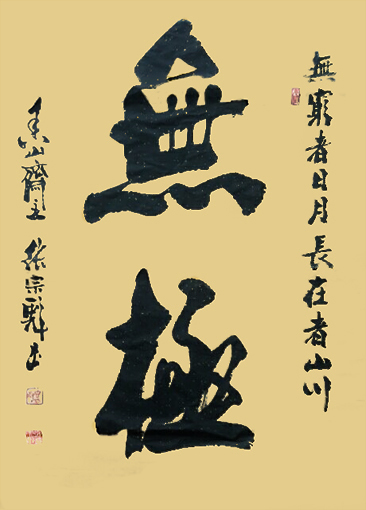 無窮者日月長在者山川
無極
香山齋主張宗彪書